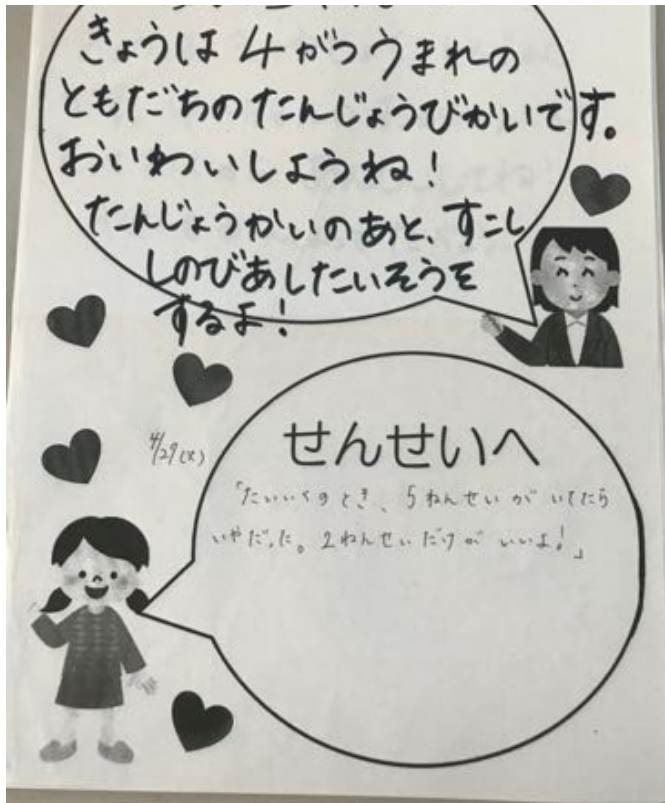 きょうは4がつうまれの
ともだちのたんじょうびかいです。
おいわいしようね!
たんじょうかいのあと、すこし
しのびあしたいそうを
するよ!
4/29(火)
せんせいへ
「たいいくのとき、5ねんせいがいてたら
いやだった。2ねんせいだけがいいよ!」